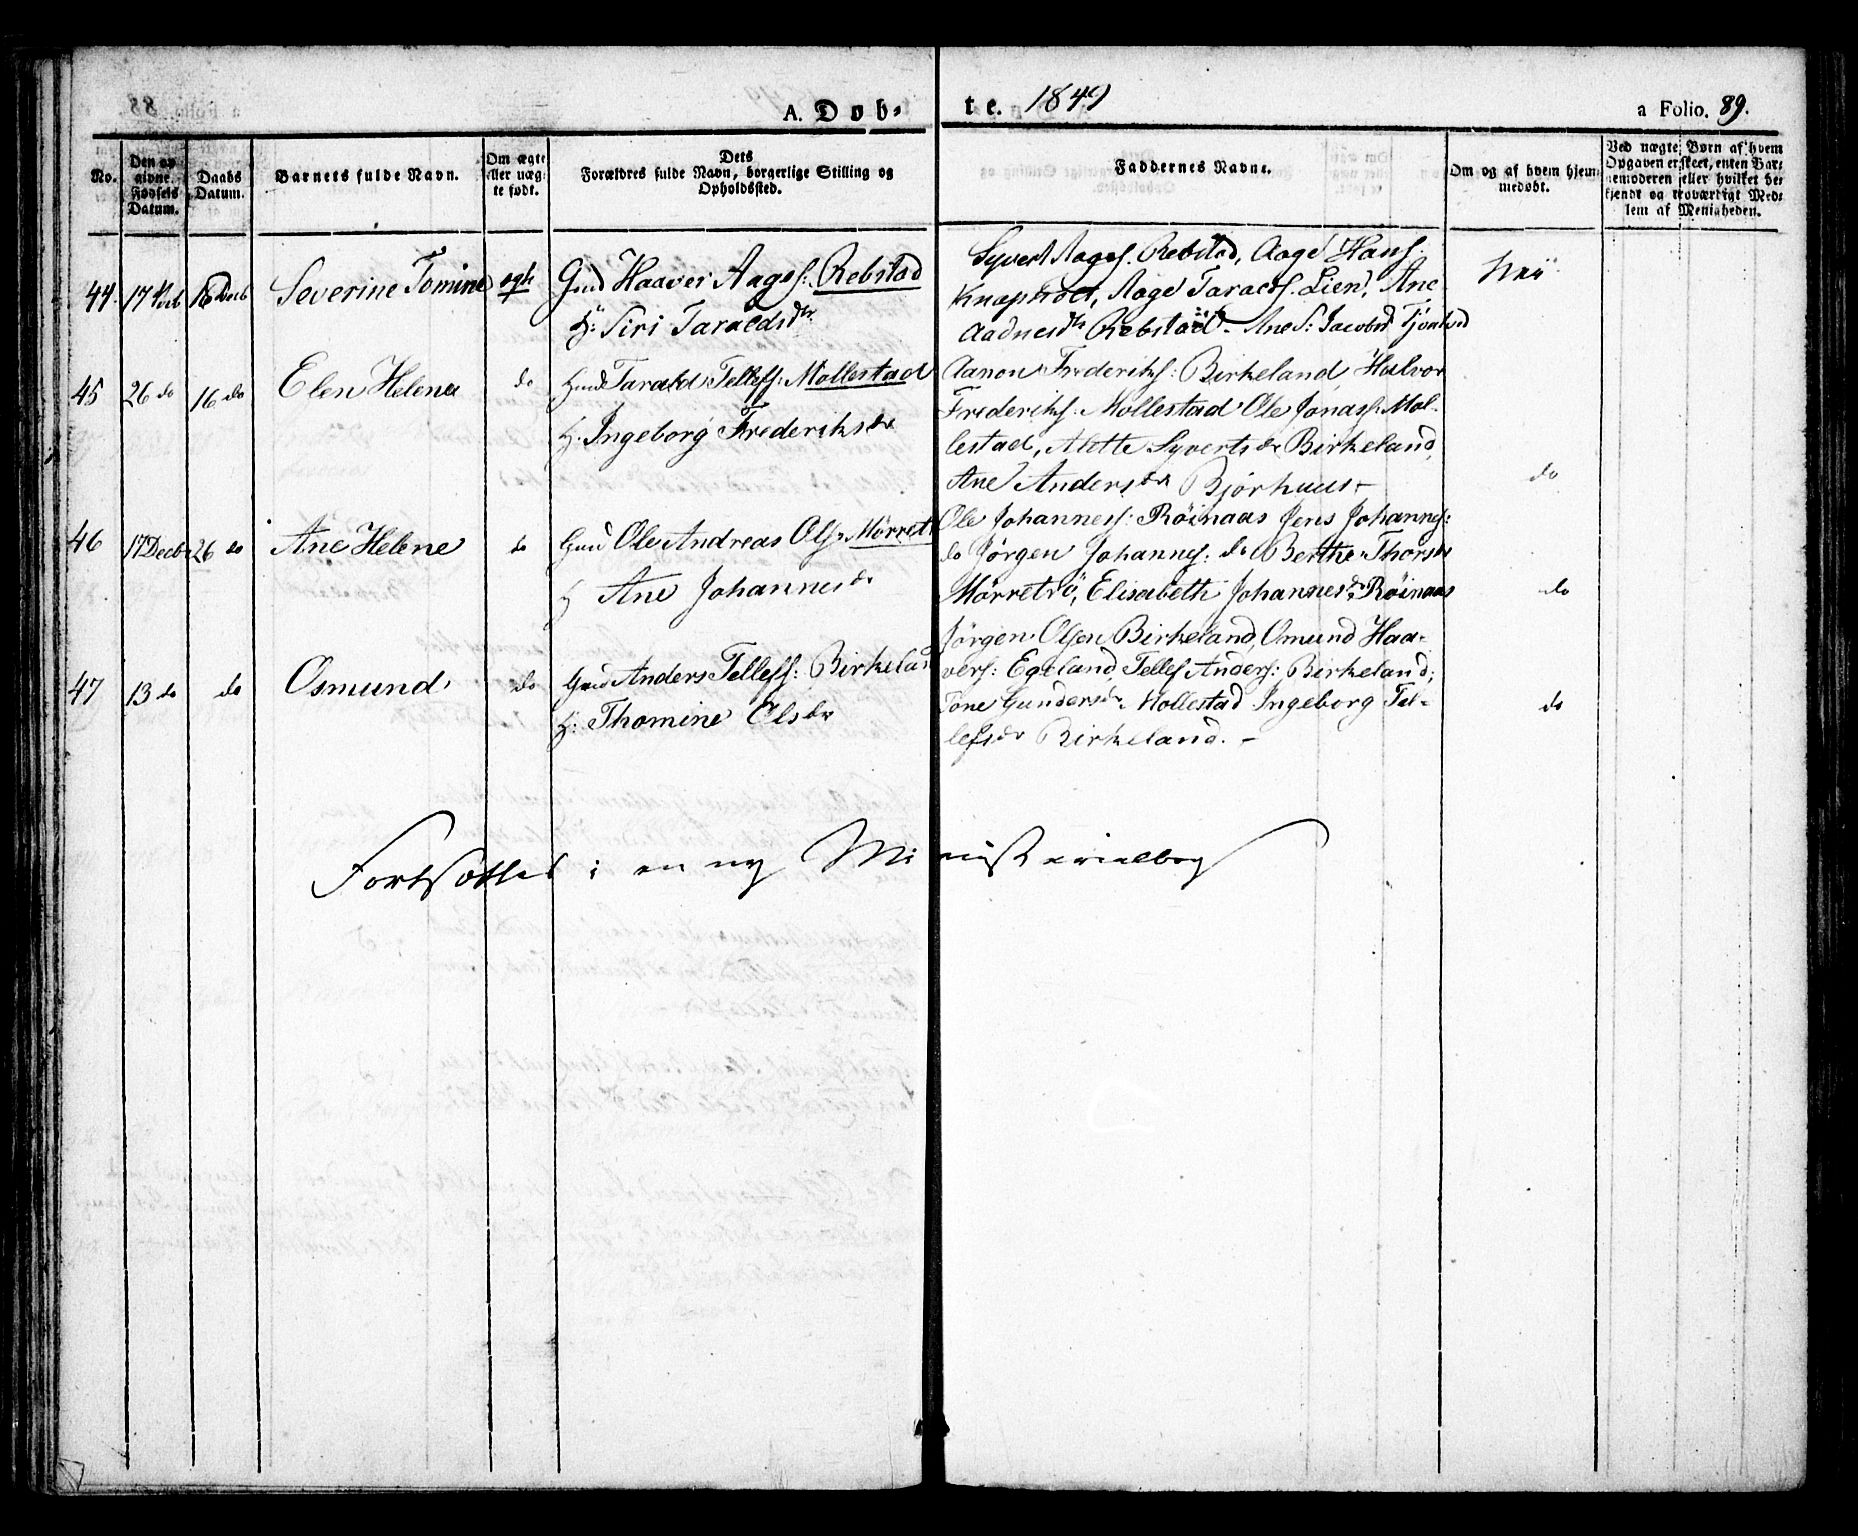 A. Døb-
te. 1849
a Folio. 89.
No.
Den opgivne Fødsels Datum.
Daabs Datum.
Barnets fulde Navn.
Om ægte eller uægte født.
Dets Forældres fulde Navn, borgerlige Stilling og Opholdssted.
Faddernes Navne.
Om og af hvem hjemmedøbt.
Ved uægte Børn af hvem Opgaven er skeet, enten Barnemoderen eller hvilket bekjendt og troværdigt Medlem af Menigheden.
44. 17 Novb 16 Decb Severine Tomine egte Gmd Haaver Aagss: Rebstad
H: Siri Taraldsdtr
Syvert Aagess. Rebstad, Aage Hanss.
Knapholt, Aage Taraldss. Lien, Ane
Aadnesdtr Rebstad - Ane S: Jacobsd
Nei
45 26 do 16 do Elen Helene do Gmd Tarald Tellefs: Mollestad
H. Ingeborg Frederiksdr
Aanon Frederiks: Birkeland, Halvor
Frederiks. Mollestad Ole Jonass. Mol-
lestad, Alette Syvertsdr Birkeland,
Ane Andersdr Bjørhuus -
do
46 17 Decbr 26 do Ane Helene do Gmd Ole Andreas Ols. Mørret
H Ane Johannesdr
Ole Johanness: Røinaas Jens Johannes:
do Jørgen Johannes: do Berthe Thorsdr
Mørretrø, Elisabeth Johannesdr Røinaas
do
47 13 do do Osmund do Gmd Anders Tellefs: Birkeland
H: Thomine Olsdr
Jørgen Olsen Birkeland, Omund Haa-
vers: Egeland, Tellef Anders: Birkeland;
Tone Gundersdr Mollestad Ingeborg Tel-
lefsdr Birkeland. -
do
Fortsættes i en ny Ministerialbog